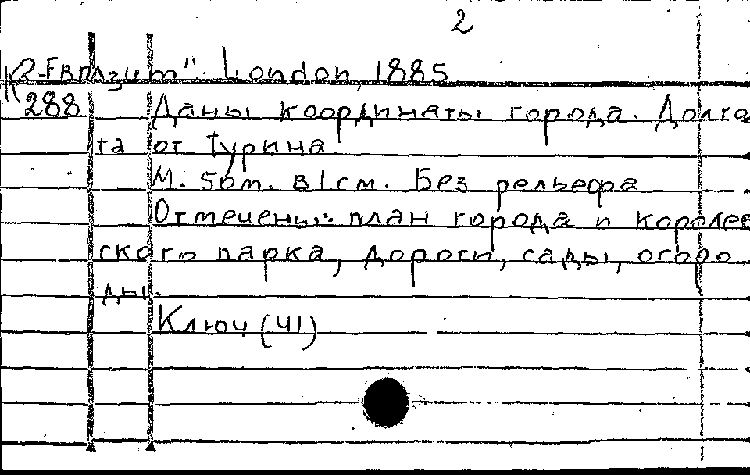 2
К 2-Евр/Зит" London, 1885
288 Даны координаты города. Долго
та от Турина.
М. 56 т. в 1 см. Без рельефа
Отмечены: план города и королев
ского парка, дороги, сады, огоро
ды.
Ключ (41)